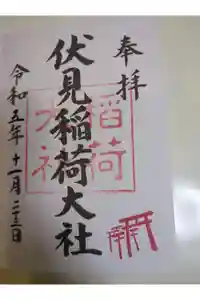 奉拝
伏見稲荷大社
令和五年十一月二十三日
稲荷
大社